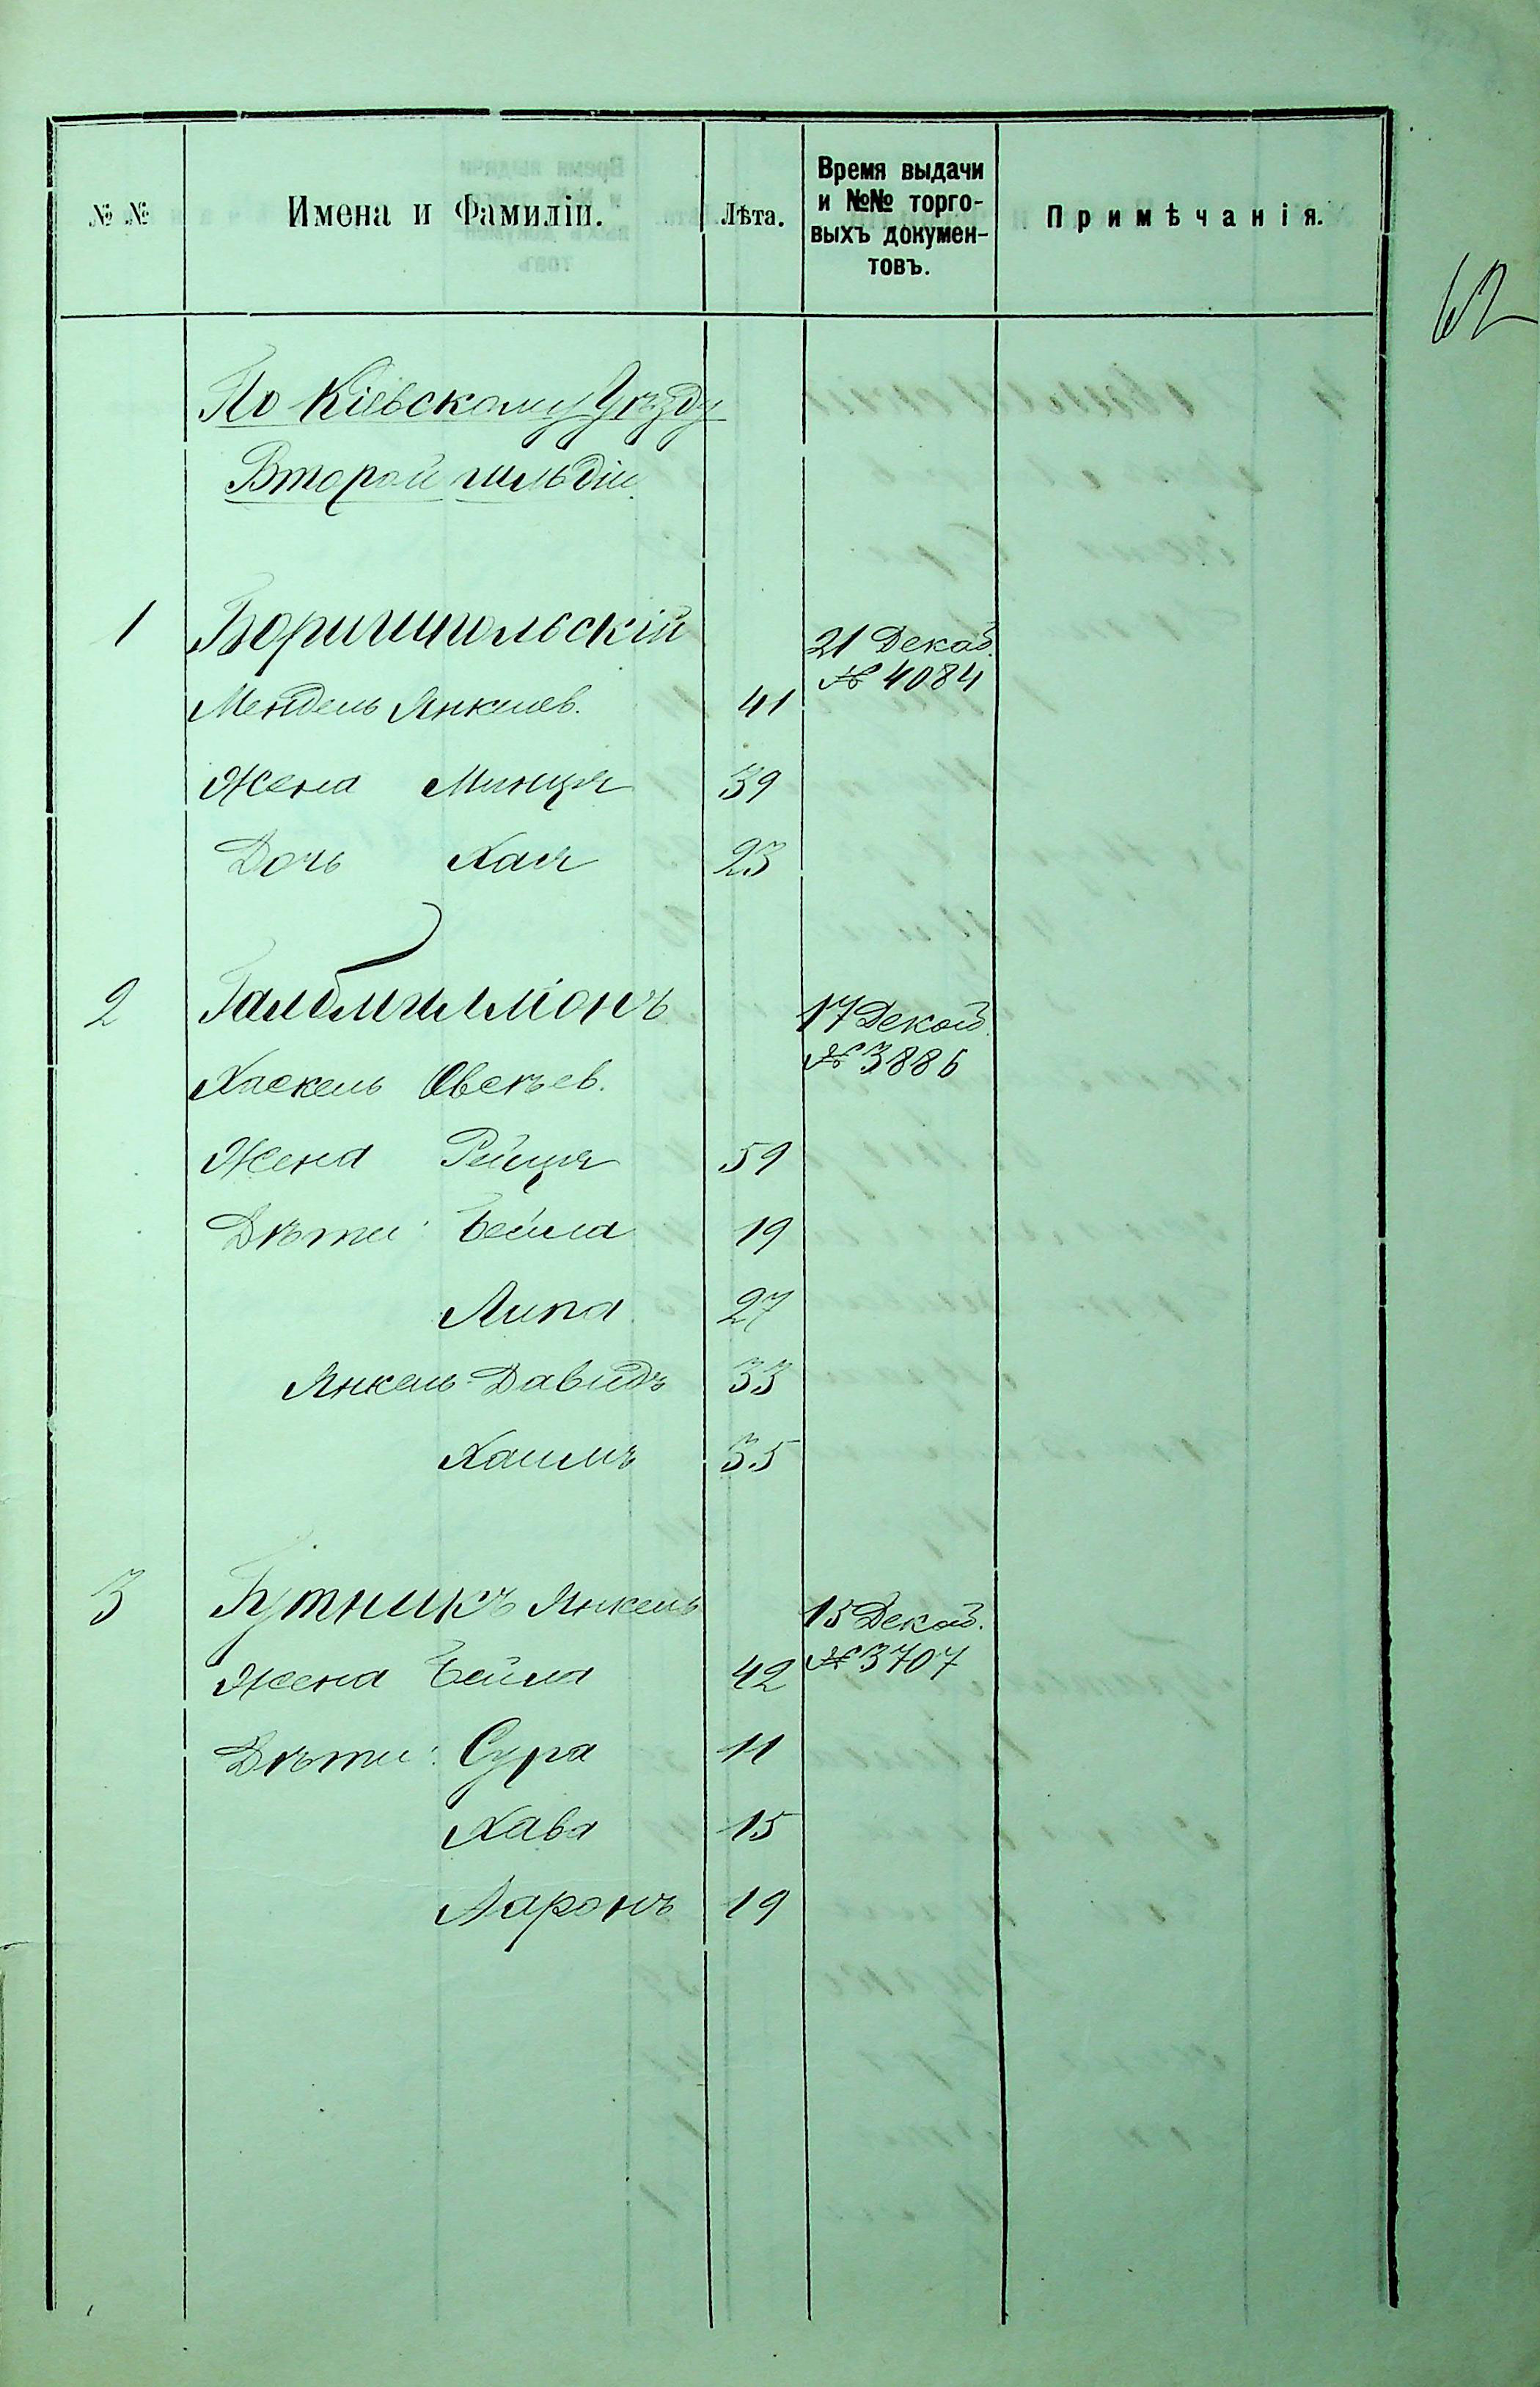 62
№ № Имена и Фамиліи. Лѣта. Время выдачи и №№ торго- выхъ докумен- товъ. Примѣчанія.
По Кіевскому Уѣзду
Второй гильдіи.
1 Боришпольскій 21 Декаб.
№ 4084
Мендель Янкелев. 41
Жена Минця 39
Дочь Хая 23
2 17 Декаб.
№ 3886
Хаскель Овсѣев.
Жена Рейця 59
Дѣти: Бейла 19
Липа 27
Янкель-Давидъ 33
Хаимъ 35
3 Бутникъ Янкель 15 Декаб.
№ 3707
Жена Бейла 42
Дѣти: Сура 11
Хава 15
Ааронъ 19